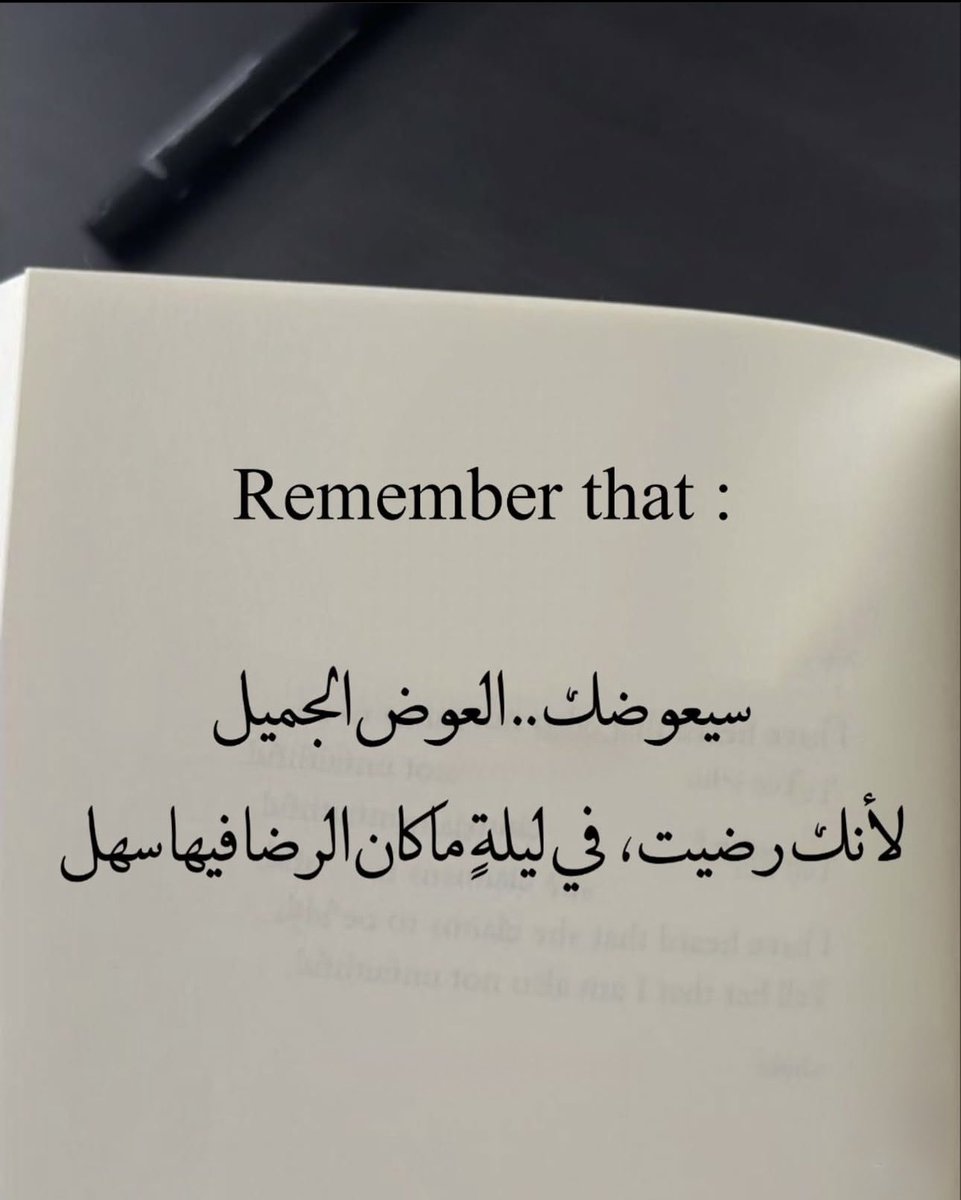 Remember that :
سيعوضك..العوض الجميل
لأنك رضيت، في ليلةٍ ماكان الرضا فيها سهل